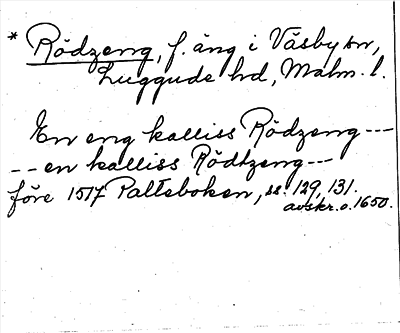 * Rödzeng, f. äng i Väsby sn,
Luggude hd, Malm. l.
En eng kalliss Rödzeng ---
-- en kalliss Rödtzeng --
före 1517 Palteboken, ss. 129, 131.
avskr. o. 1650.